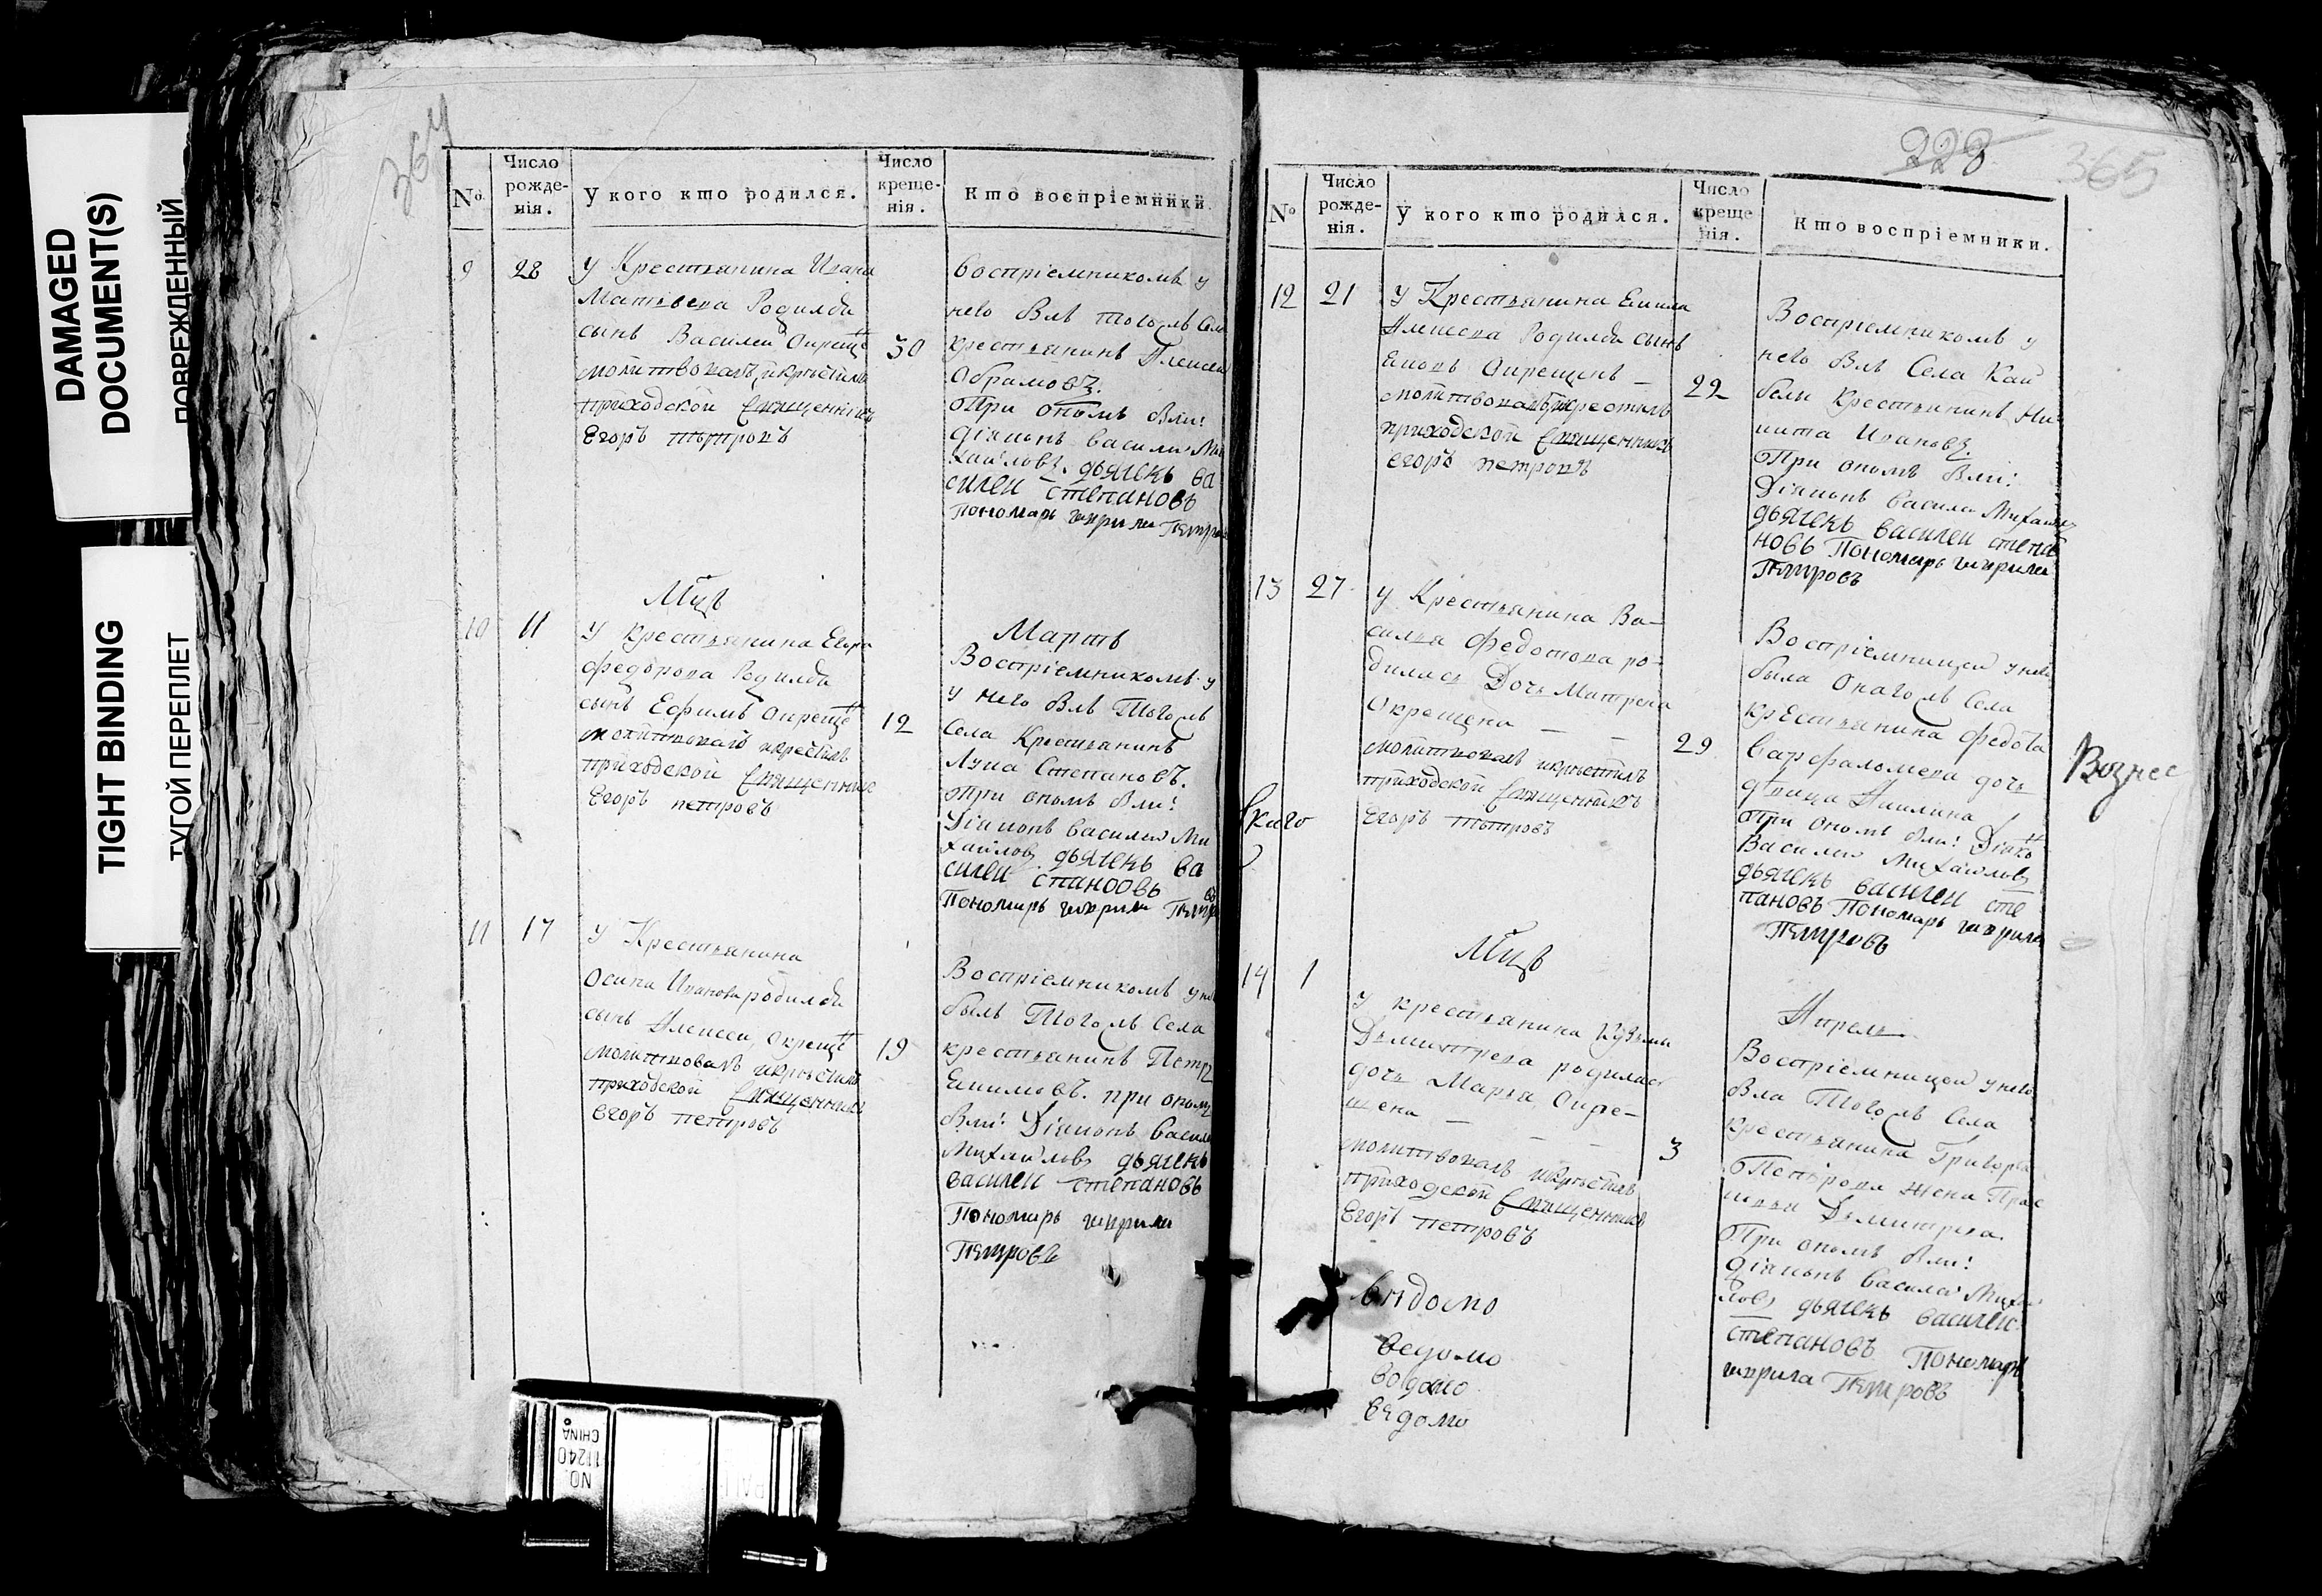 DAMAGED
DOCUMENT(S)
ПОВРЕЖДЕННЫЙ
TIGHT BINDING
ТУГОЙ ПЕРЕПЛЕТ
364
№
Число рожденія.
У кого кто родился.
Число крещенія.
Кто воспріемники.
9 28
у Крестьянина Ивана
Матвеева Родился
сынъ Василеи Окрещенъ
молитвовалъ икрѣстилъ
приходской Священникъ
Егоръ Пѣтровъ
30
воспріемникомъ у
него былъ тогожъ села
крестьянинъ Алексеи
Обрамовъ.
При ономъ были:
діяконъ василии Ми
хаиловъ. дьячекь ва
силеи степановъ
Пономарь гаврила Пѣтровъ
Мцъ
Мартъ
10 11
у крестьянина Егора
федорова Родился
сынъ Ефимъ окрещенъ
молитвовалъ икрестилъ
приходской Священникъ
Егоръ петровъ
12
Воспріемникомъ у
у него былъ Тогожъ
Села Крестьянинъ
Лука Степановъ.
При ономъ были:
Діяконъ василии Ми
хаиловъ дьячекь ва
силеи спановъ
Пономарь гаврила Пѣтровъ
11 17
у Крестьянина
Осипа Иванова родился
сынъ Алексеи, окрещенъ
молитвовалъ икрѣстилъ
приходской Священникъ
Егоръ петровъ
19
Воспріемникомъ у него
былъ Тогожъ Села
крестьянинъ Петръ
Екимовъ. при ономъ
были: Діяконъ василии
Михаиловъ дьячекь
василеи степановъ
Пономарь гаврила
Пѣтровъ
228
365
№
Число рожденія.
У кого кто родился.
Число крещенія.
Кто воспріемники.
12 21
у Крестьянина Екима
Алексеева Родился сынъ
Окрещенъ
молитвовалъ икрестилъ
приходской Священникъ
егоръ петровъ
22
Воспріемникомъ у
него былъ Села
Крестьянинъ Ни
кита Ивановъ.
При ономъ были:
Діяконъ василии Михаиловъ
дьячекь василеи степа
новъ Пономарь гаврила
Пѣтровъ
13 27
у Крестьянина Ва-
силья Федотова ро-
дилась Дочь Матрена
Окрещена
молитвовалъ икрѣстилъ
приходской Священникъ
Егоръ Пѣтровъ
29
Воспріемницей у него
была Онагожъ Села
крестьянина федота
варфаломеева дочь
девица Акилина
При ономъ были: Діяконъ
Василии Михаиловъ
дьячекь василеи сте
пановъ Пономарь гаврила
Пѣтровъ
Вознес
скаго
Мцъ
Апрель
14 1
у крестьянина Кузьмы
Дьмитрева родилась
дочь Марья Окре-
щена
молитвовалъ икрѣстилъ
приходской Священникъ
Егоръ петровъ
3
Воспріемницей у него
была Тогожъ Села
крестьянина Григорья
Петрова жена Прас
ковья Дьмитрева.
При ономъ были:
діяконъ василии Михаи
ловъ дьячекь василеи
степановъ Пономарь
гаврила Пѣтровъ
ведомо
водомо
ведомо
NO. 11240
CHINA